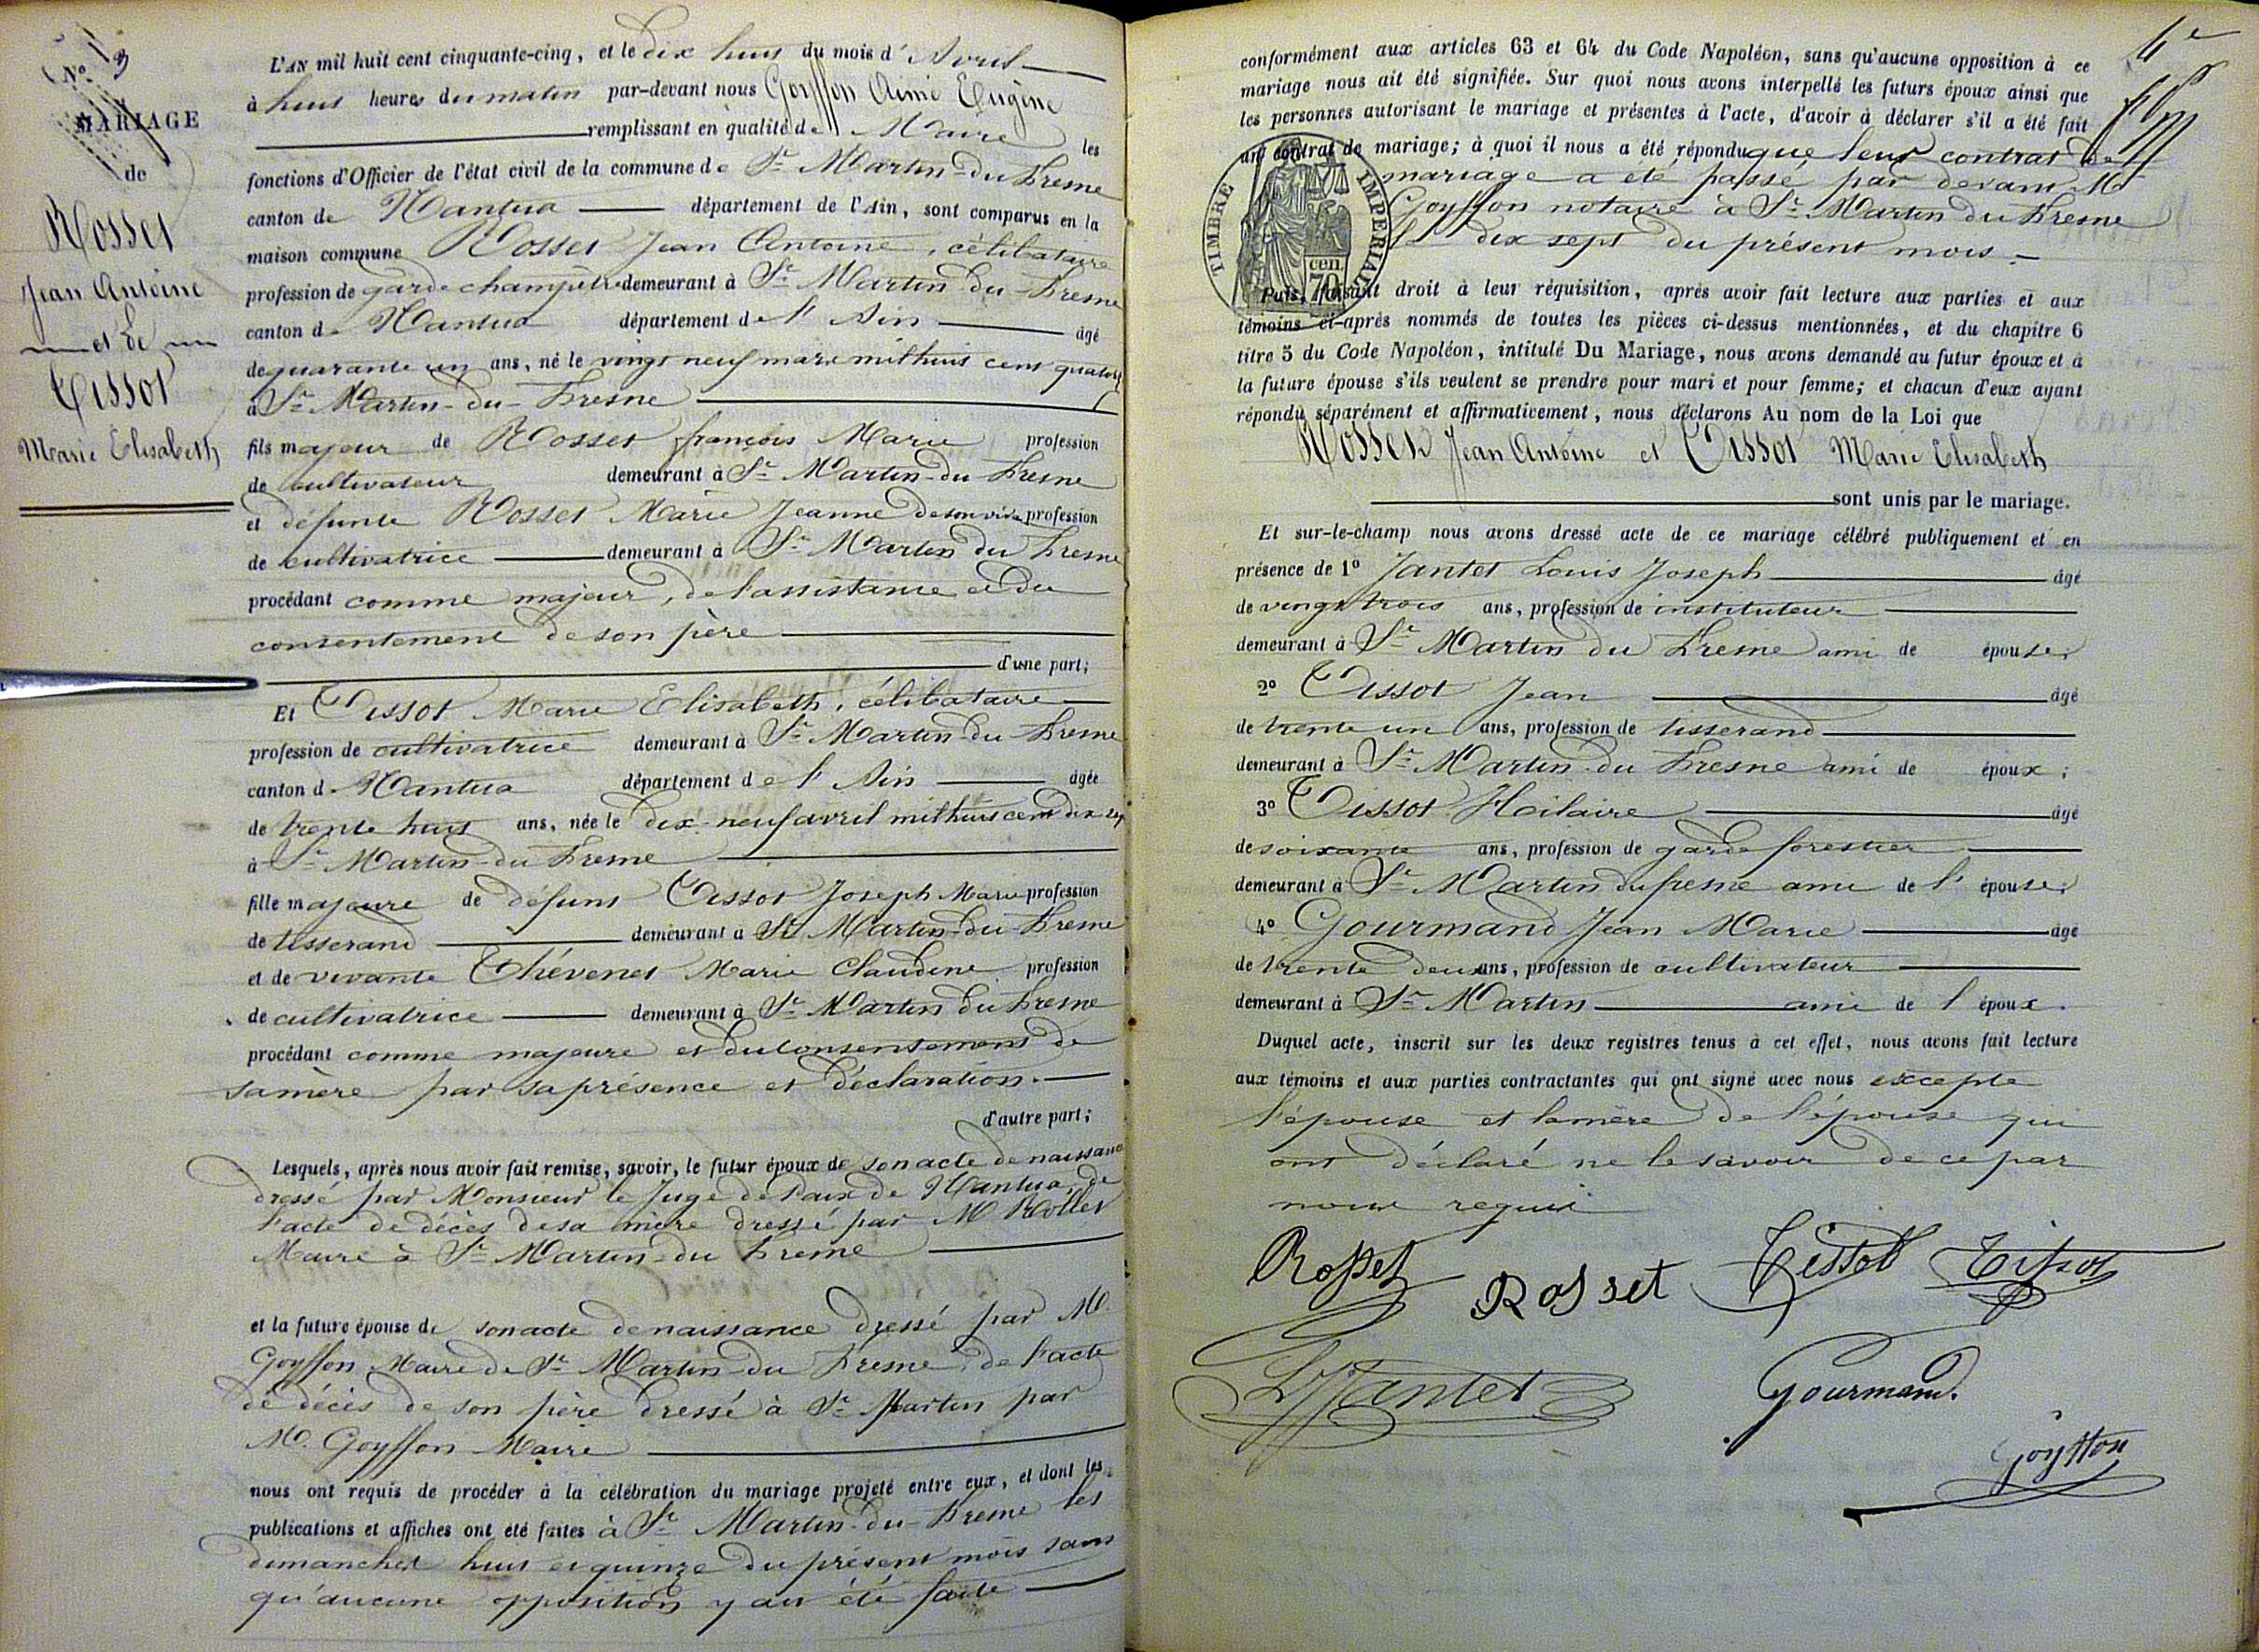 N° 3
MARIAGE
de
Rosset
Jean Antoine
et de
Tissot
Marie Elisabeth
L'AN mil huit cent cinquante-cinq, et le dix huit du mois d'Avril
à huit heures du matin par-devant nous Goyffon Aimé Eugène
remplissant en qualité de Maire les
fonctions d'Officier de l'état civil de la commune de St Martin-du Fresne
canton de Nantua département de l'Ain, sont comparus en la
maison commune Rosset Jean Antoine, célibataire
profession de garde champêtre demeurant à St Martin du-Fresne
canton de Nantua département de l'Ain âgé
de quarante un ans, né le vingt neuf mars mil huit cent quatorze
à St Martin-du-Fresne
fils majeur de Rosset françois Marie profession
de cultivateur demeurant à St Martin-du-Fresne
et défunte Rosset Marie Jeanne de son vivant profession
de cultivatrice demeurant à St Martin du Fresne
procédant comme majeur, de l'assistance et du
consentement de son père
d'une part;
Et Tissot Marie Elisabeth, célibataire
profession de cultivatrice demeurant à St Martin-du-Fresne
canton de Nantua département de l'Ain âgée
de trente huit ans, née le dix-neuf avril mil huit cent dix sept
à St Martin-du Fresne
fille majeure de défunt Tissot Joseph Marie profession
de tisserand demeurant à St Martin-du-Fresne
et de vivante Thévenet Marie Claudine profession
de cultivatrice demeurant à St Martin du Fresne
procédant comme majeure et du consentement de
sa mère par sa présence et déclaration.
d'autre part;
Lesquels, après nous avoir fait remise, savoir, le futur époux de son acte de naissance
dressé par Monsieur le Juge de Paix de Nantua, de
l'acte de décès de sa mère dressé par M Rollet
Maire à St Martin-du Fresne
et la future épouse de son acte de naissance dressé par M.
Goyffon Maire de St Martin du Fresne, de l'acte
de décès de son père dressé à St Martin par
M. Goyffon Maire
nous ont requis de procéder à la célébration du mariage projeté entre eux, et dont les
publications et affiches ont été faites à St Martin-du-Fresne les
dimanches huit et quinze du présent mois sans
qu'aucune opposition y ait été faite
4e
conformément aux articles 63 et 64 du Code Napoléon, sans qu'aucune opposition à ce
mariage nous ait été signifiée. Sur quoi nous avons interpellé les futurs époux ainsi que
les personnes autorisant le mariage et présentes à l'acte, d'avoir à déclarer s'il a été fait
un contrat de mariage; à quoi il nous a été répondu que leur contrat de
mariage a été passé par devant Me
Goyffon notaire à St Martin du Fresne
le dix sept du présent mois.
TIMBRE IMPERIAL
70 cen.
Puis, faisant droit à leur réquisition, après avoir fait lecture aux parties et aux
témoins ci-après nommés de toutes les pièces ci-dessus mentionnées, et du chapitre 6
titre 5 du Code Napoléon, intitulé Du Mariage, nous avons demandé au futur époux et à
la future épouse s'ils veulent se prendre pour mari et pour femme; et chacun d'eux ayant
répondu séparément et affirmativement, nous déclarons Au nom de la Loi que
Rosset Jean Antoine et Tissot Marie Elisabeth
sont unis par le mariage.
Et sur-le-champ nous avons dressé acte de ce mariage célébré publiquement et en
présence de 1° Jantet Louis Joseph âgé
de vingt trois ans, profession de instituteur
demeurant à St Martin du Fresne ami de épouse;
2° Tissot Jean âgé
de trente un ans, profession de tisserand
demeurant à St Martin-du Fresne ami de époux;
3° Tissot Hilaire âgé
de soixante ans, profession de garde forestier
demeurant à St Martin du fresne ami de l'épouse;
4° Gourmand Jean Marie âgé
de trente deux ans, profession de cultivateur
demeurant à St Martin ami de l'époux.
Duquel acte, inscrit sur les deux registres tenus à cet effet, nous avons fait lecture
aux témoins et aux parties contractantes qui ont signé avec nous excepté
l'épouse et la mère de l'épouse qui
ont déclaré ne le savoir de ce par
nous requis
Rosset Rosset Tissot Tissot
LJJantet Gourmand.
Goyffon